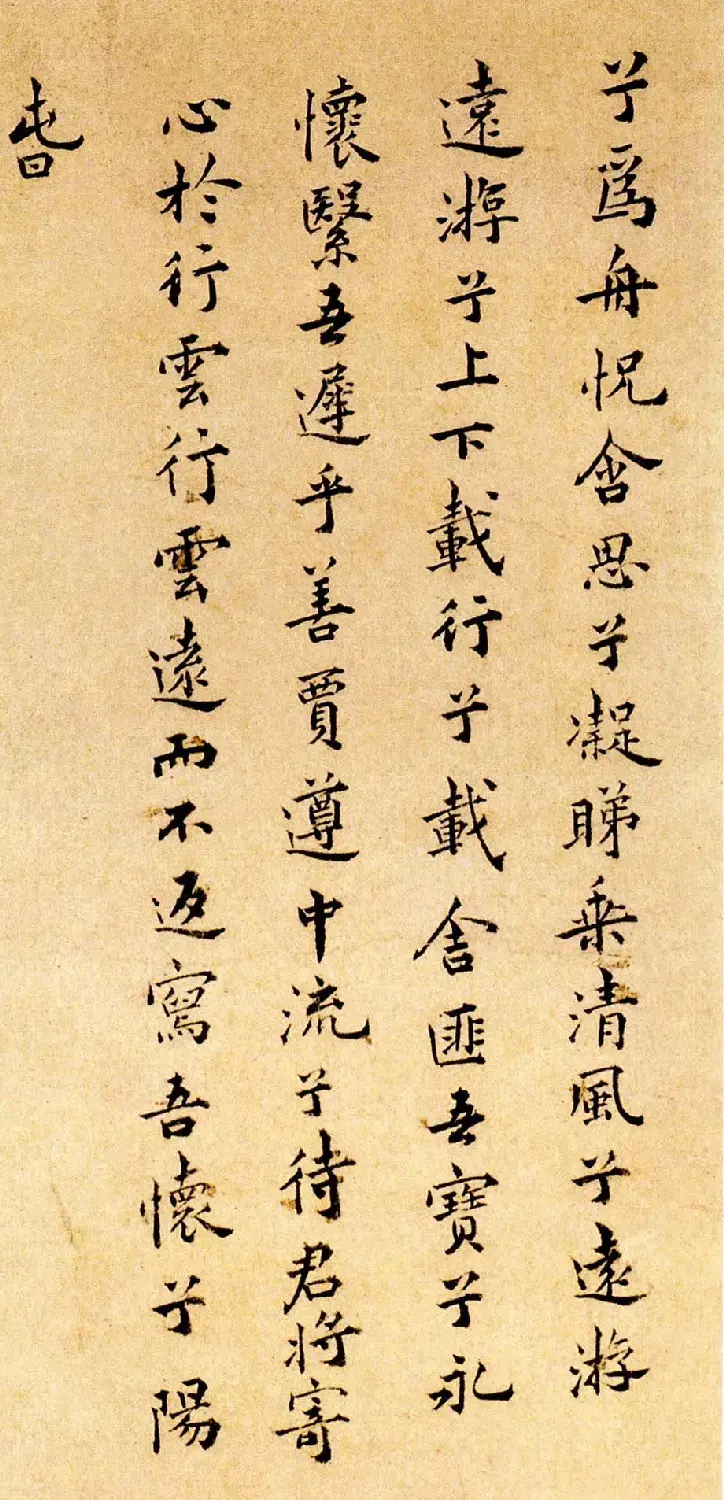 兮爲舟怳含思兮凝睇乗清風兮遠游
遠游兮上下載行兮載舍匪吾寶兮永
懷繄吾遲乎善賈遵中流兮待君將寄
心於行雲行雲遠而不返寫吾懷兮陽
旾